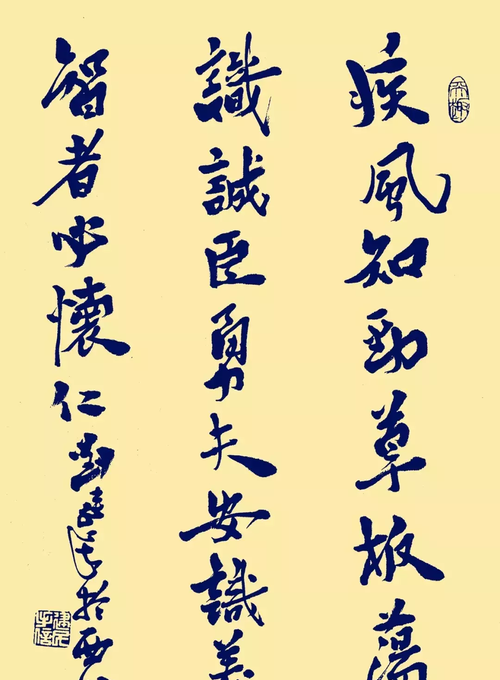 疾風知勁草板蕩
識誠臣勇夫安識義
智者必懷仁